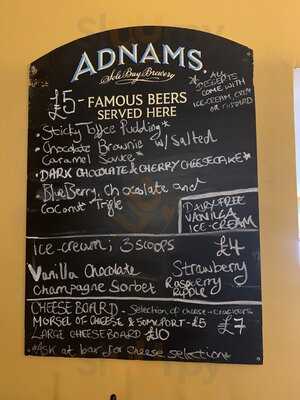 ADNAMS
Sole Bay Brewery
FAMOUS BEERS
SERVED HERE
£5-
* ALL
DESSERTS
COME WITH
ICE-CREAM, CREAM
OR CUSTARD
• Sticky Toffee Pudding*
• Chocolate Brownie w/ Salted
Caramel Sauce*
• DARK CHOCOLATE & CHERRY CHEESECAKE*
• Blueberry, Chocolate and
Coconut Trifle
DAIRY-FREE
VANILLA
ICE-CREAM
ICE-cream; 3 SCOOPS £4
Vanilla Chocolate Strawberry
Champagne Sorbet Raspberry
Ripple
CHEESEBOARD - Selection of cheese + crackers £7
MORSEL OF CHEESE & SOME PORT - £5
LARGE CHEESEBOARD £10
*Ask at bar for cheese selection*